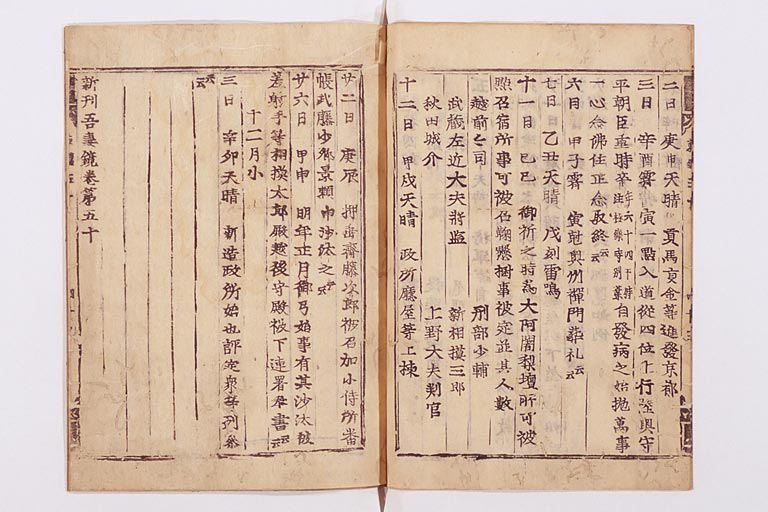 二日 庚申天晴 貢馬京進發京都
三日 辛酉霽寅一點入道從四位上行陸奥守
平朝臣重時卒 年六十四 于時 自發病之始抛萬事
一心念佛住正念取終云云
六日 甲子霽 寅尅奥州禅門葬礼云云
七日 乙丑天晴 戌刻雷鳴
十一日 己巳 御祈之時為大阿闍梨壇所可被
點召宿所事可被召鞠懸樹事被定並其人數
越前々司 刑部少輔
武蔵左近大夫將監 新相摸三郎
秋田城介 上野大夫判官
十二日 甲戌天晴 政所廰屋等上棟
廿二日 庚辰 押垂齋藤次郎被召加小侍所番
帳武藤少卿景頼申沙汰之云云
廿六日 甲申 明年正月御弓始事有其沙汰被
差射手等相摸太郎殿越後守殿被下連署奉書云云
十二月小
三日 辛卯天晴 新造政所始也評定衆等列参
云云
新刊吾妻鏡巻第五十